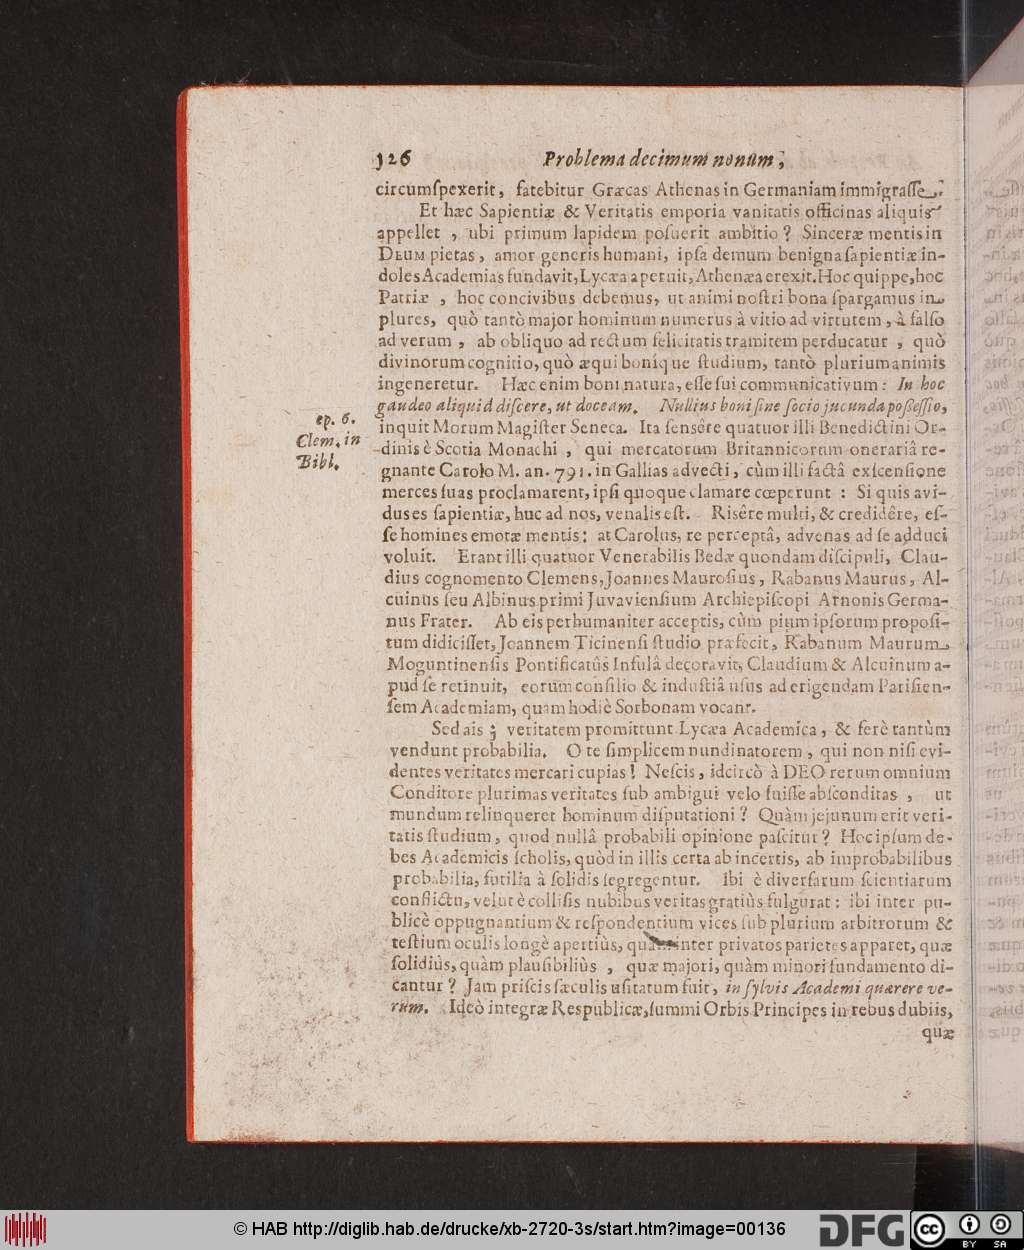 126 Problema decimum nonum,
circumſpexerit, fatebitur Græcas Athenas in Germaniam immigraſſe.
Et hæc Sapientiæ & Veritatis emporia vanitatis officinas aliquis
appellet, ubi primum lapidem poſuerit ambitio? Sinceræ mentis in
DEUM pietas, amor generis humani, ipſa demum benigna ſapientiæ in-
doles Academias fundavit, Lycæa aperuit, Athenæa erexit. Hoc quippe, hoc
Patriæ, hoc concivibus debemus, ut animi noſtri bona ſpargamus in
plures, quò tantò major hominum numerus à vitio ad virtutem, à falſo
ad verum, ab obliquo ad rectum felicitatis tramitem perducatur, quò
divinorum cognitio, quò æqui bonique ſtudium, tantò plurium animis
ingeneretur. Hæc enim boni natura, eſſe ſui communicativum: In hoc
gaudeo aliquid diſcere, ut doceam. Nullius boni ſine ſocio jucunda poſſeſſio,
ep. 6.
inquit Morum Magiſter Seneca. Ita ſensêre quatuor illi Benedictini Or-
Clem. in
Bibl.
dinis è Scotia Monachi, qui mercatorum Britannicorum onerariâ re-
gnante Carolo M. an. 791. in Gallias advecti, cùm illi factâ exſcenſione
merces ſuas proclamarent, ipſi quoque clamare cœperunt: Si quis avi-
dus es ſapientiæ, huc ad nos, venalis eſt. Risêre multi, & credidêre, eſ-
ſe homines emotæ mentis: at Carolus, re perceptâ, advenas ad ſe adduci
voluit. Erant illi quatuor Venerabilis Bedæ quondam diſcipuli, Clau-
dius cognomento Clemens, Joannes Mauroſius, Rabanus Maurus, Al-
cuinus ſeu Albinus primi Juvavienſium Archiepiſcopi Arnonis Germa-
nus Frater. Ab eis perhumaniter acceptis, cùm pium ipſorum propoſi-
tum didiciſſet, Joannem Ticinenſi ſtudio præfecit, Rabanum Maurum
Moguntinenſis Pontificatûs Inſulâ decoravit, Claudium & Alcuinum a-
pud ſe retinuit, eorum conſilio & induſtiâ uſus ad erigendam Pariſien-
ſem Academiam, quam hodiè Sorbonam vocant.
Sed ais; veritatem promittunt Lycæa Academica, & ferè tantùm
vendunt probabilia. O te ſimplicem nundinatorem, qui non niſi evi-
dentes veritates mercari cupias! Neſcis, idcircò à DEO rerum omnium
Conditore plurimas veritates ſub ambigui velo fuiſſe abſconditas, ut
mundum relinqueret hominum diſputationi? Quàm jejunum erit veri-
tatis ſtudium, quod nullâ probabili opinione paſcitur? Hoc ipſum de-
bes Academicis ſcholis, quòd in illis certa ab incertis, ab improbabilibus
probabilia, futilia à ſolidis ſegregentur. Ibi è diverſarum ſcientiarum
conflictu, velut è colliſis nubibus veritas gratiùs fulgurat: ibi inter pu-
blicè oppugnantium & reſpondentium vices ſub plurium arbitrorum &
teſtium oculis longè apertiùs, quàm inter privatos parietes apparet, quæ
ſolidiùs, quàm plauſibiliùs, quæ majori, quàm minori fundamento di-
cantur? Jam priſcis ſæculis uſitatum fuit, in ſylvis Academi quærere ve-
rum. Ideò integræ Respublicæ, ſummi Orbis Principes in rebus dubiis,
quæ
© HAB http://diglib.hab.de/drucke/xb-2720-3s/start.htm?image=00136
DFG
cc BY SA